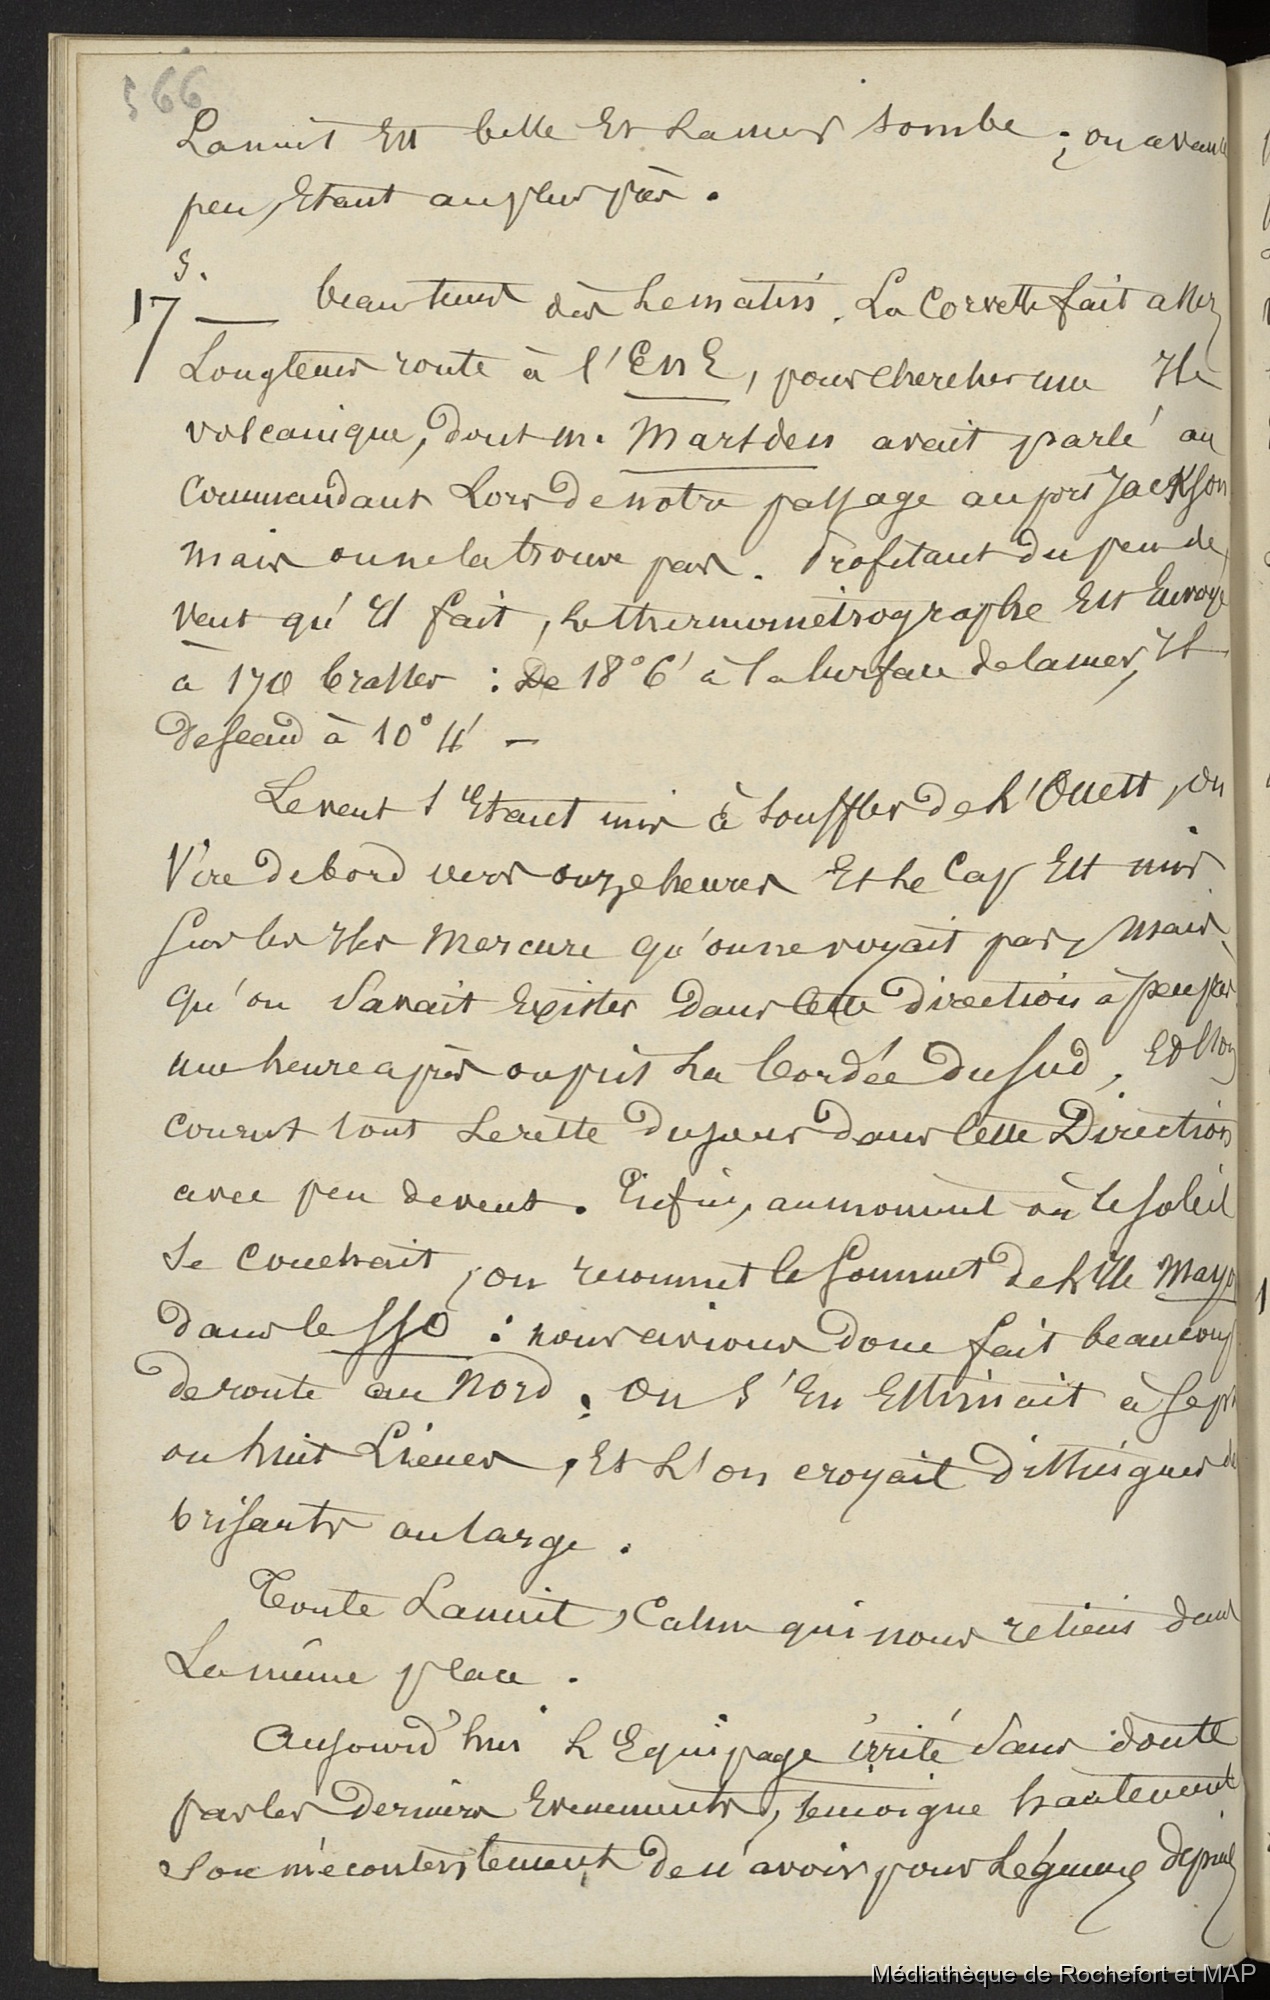 566
La nuit est belle et la mer tombe ; on avance
peu, étant au plus près.
S.
17 — beau tems dès le matin. La Corvette fait assez
Longtems route à l'ENE, pour chercher une Ile
volcanique, dont m. Marsden avait parlé au
Commandant Lors de notre passage au port Jackson
mais on ne la trouve pas. Profitant du peu de
vent qu'il fait, le thermométrographe est Envoyé
à 170 brasses : De 18° 6' à la surface de la mer, Il
descend à 10° 4' —
Le vent s'étant mis à souffler de L'Ouest, on
Vire de bord vers onze heures et Le Cap Est mis
sur les Iles Mercure qu'on ne voyait pas, Mais
qu'on savait Exister dans cette direction à peu près
une heure après on prit La bordée du sud, Et l'on
courut tout Le reste du jour dans cette Direction
avec peu de vent. Enfin, au moment où le soleil
se couchait, on reconnut le sommet de L'Ile Mayo
dans le SSO : nous avions donc fait beaucoup
de route au Nord ; On s'En Estimait à sept
ou huit Lieues, Et L'on croyait distinguer des
brisants au large.
Toute La nuit, Calme qui nous retient dans
La même place.
Aujourd'hui L'Equipage irrité sans doute
par les derniers Evenements, temoigne hautement
son mécontentement de n'avoir pour Légume depuis
Médiathèque de Rochefort et MAP